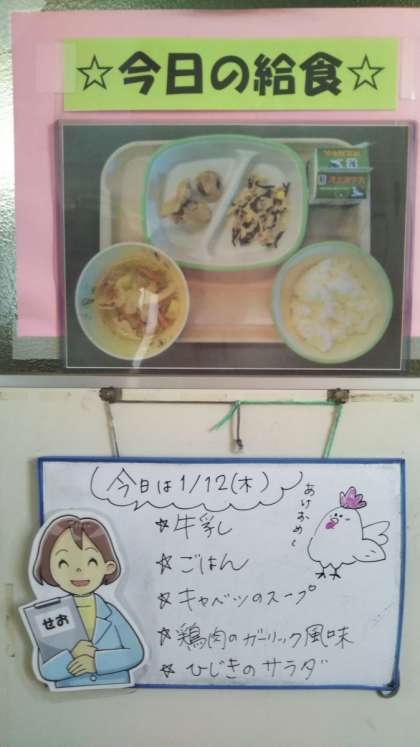 ☆今日の給食☆
今日は1/12(木)
あけおめ~
☆牛乳
☆ごはん
☆キャベツのスープ
☆鶏肉のガーリック風味
☆ひじきのサラダ
せお